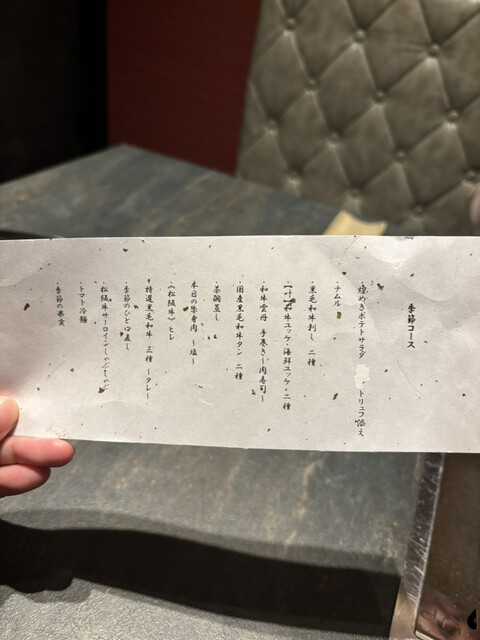 季節コース
煌めきポテトサラダ トリュフ添え
ナムル
黒毛和牛刺し 二種
【叶】和牛ユッケ・海鮮ユッケ・二種
和牛雲丹 手巻き～肉寿司～
国産黒毛和牛タン 二種
茶碗蒸し
本日の牛赤肉 ～塩～
《松阪牛》ヒレ
特選黒毛和牛 三種 ～タレ～
季節のひと口直し
松阪牛サーロインしゃぶしゃぶ
トマト冷麺
季節の果実